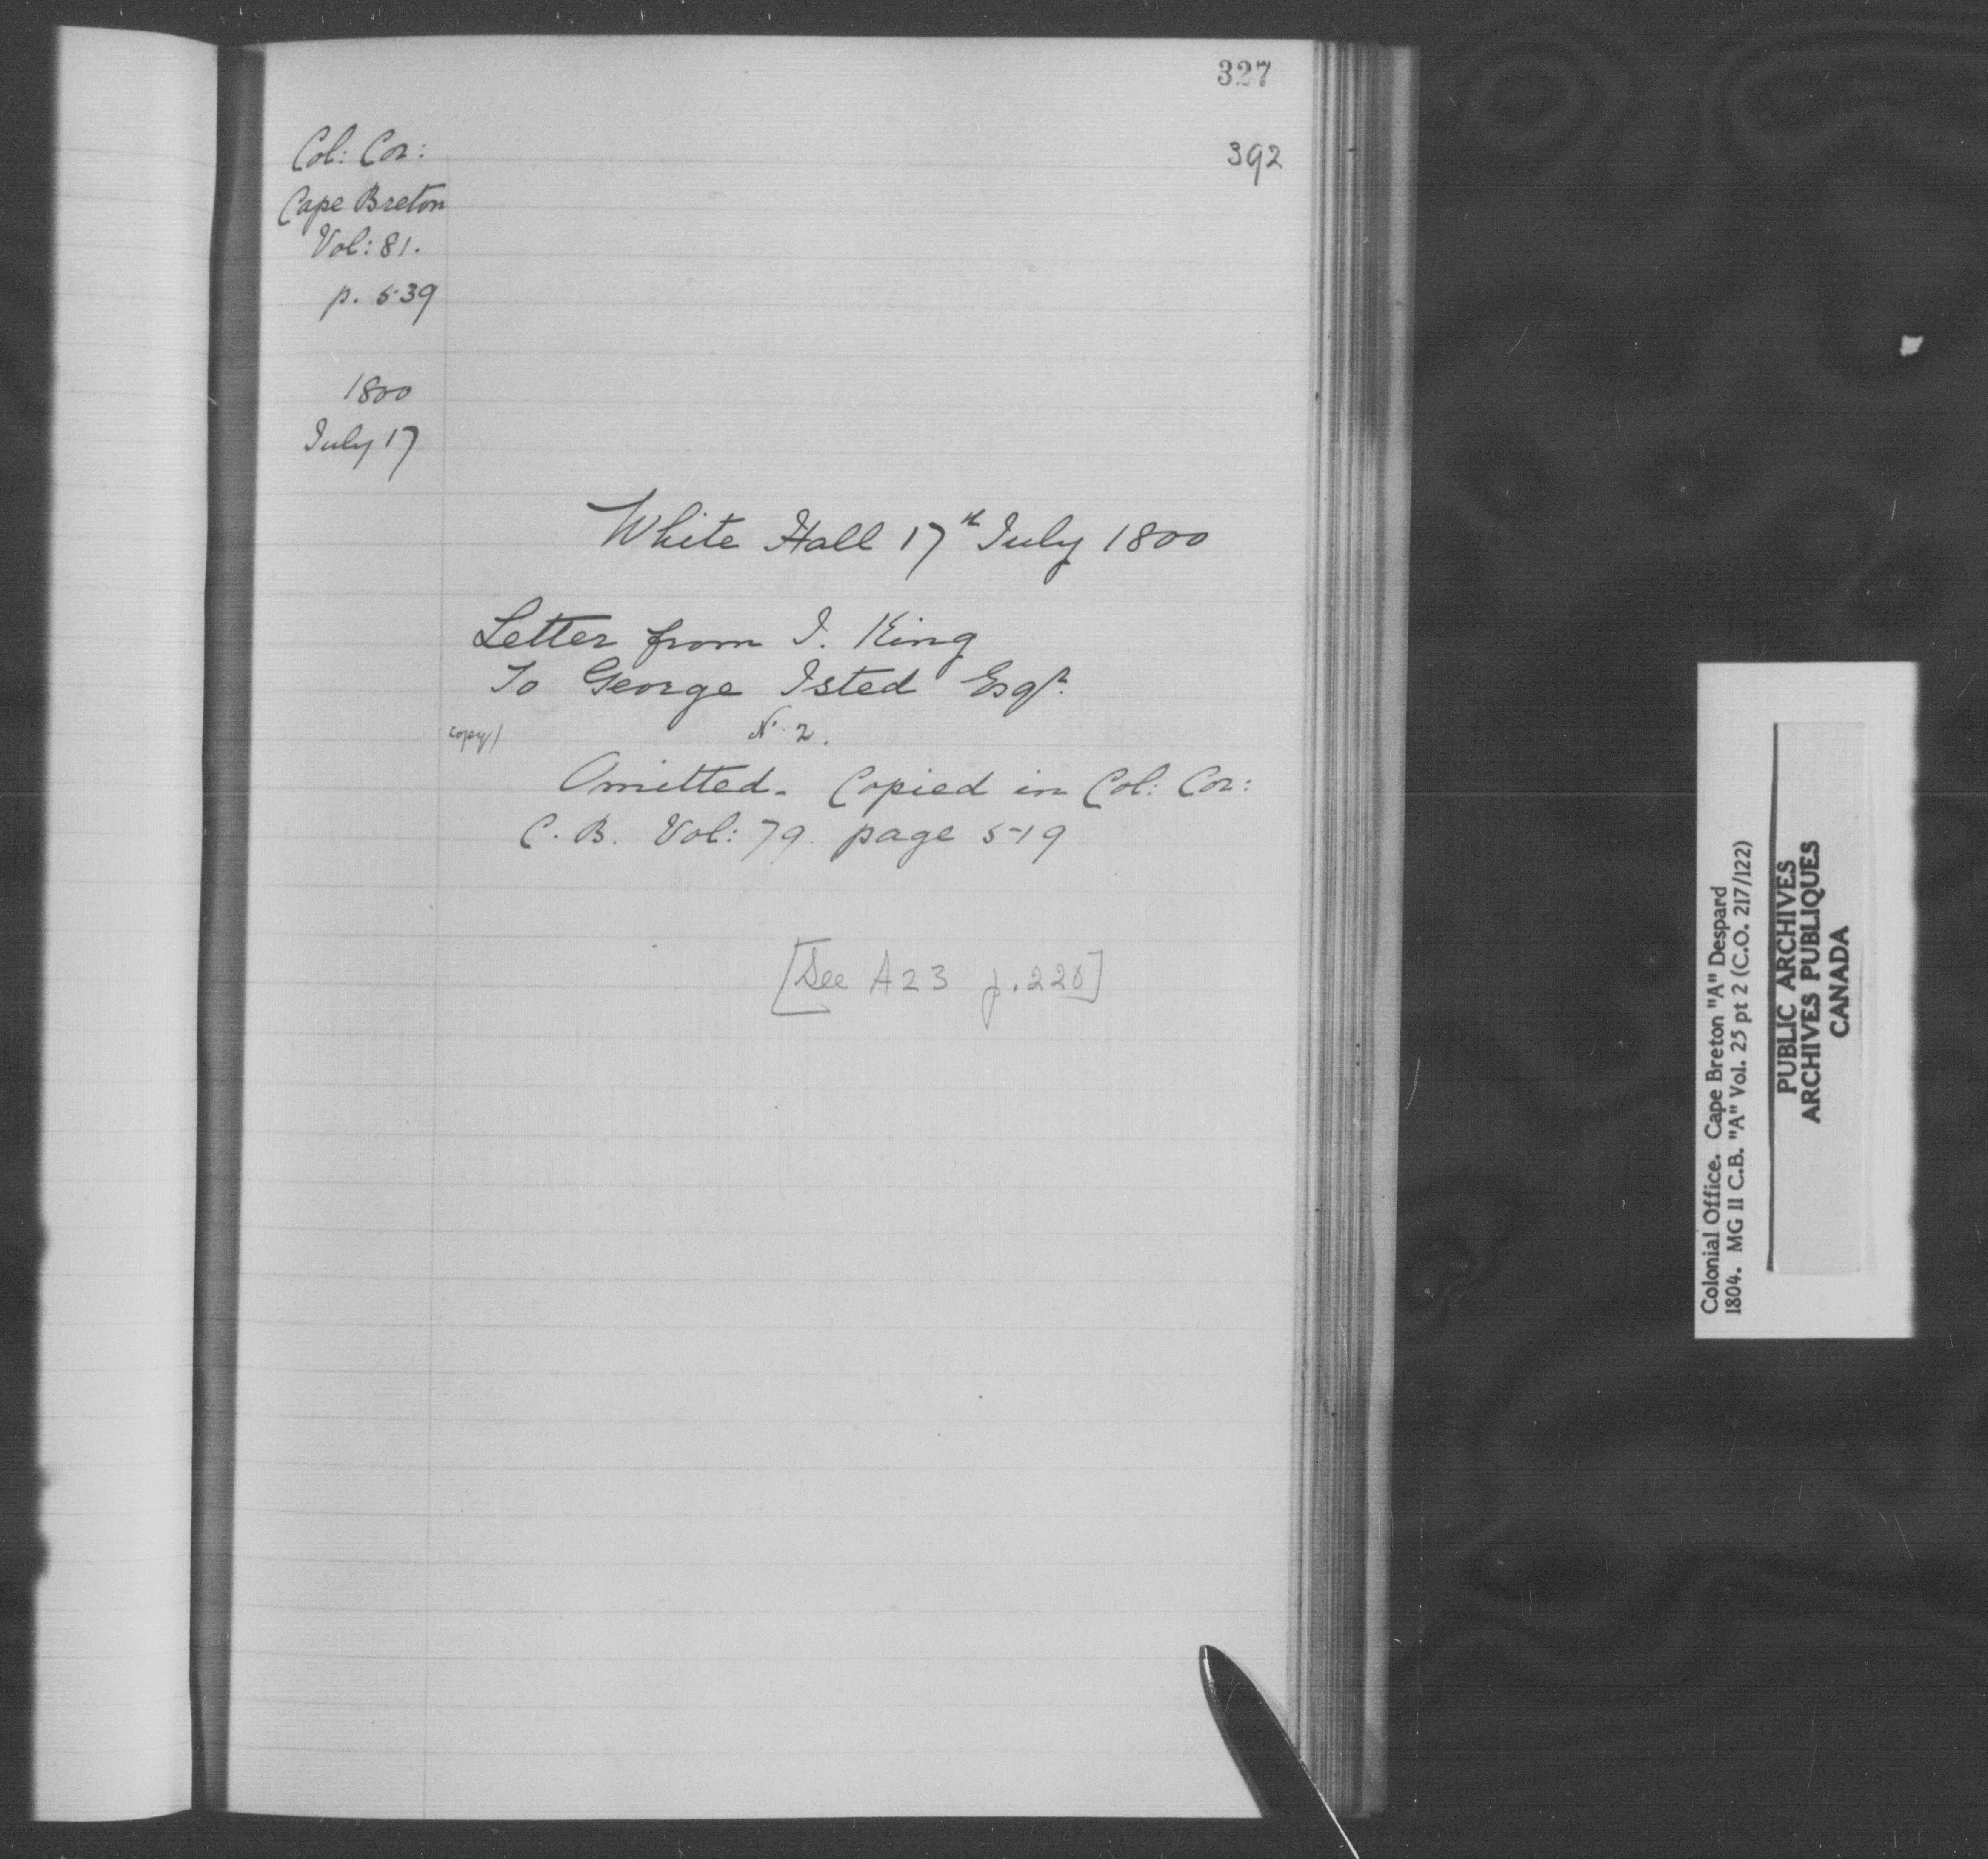 327
392
Col: Cor:
Cape Breton
Vol: 81.
p. 539
1800
July 17
White Hall 17th July 1800
Letter from J. King
To George Isted Esqr.
copy/ No. 2.
Omitted. Copied in Col: Cor:
C. B. Vol: 79. page 519
[See A23 p. 220]
Colonial Office. Cape Breton "A" Despard
1804. MG 11 C.B. "A" Vol. 25 pt 2 (C.O. 217/122)
PUBLIC ARCHIVES
ARCHIVES PUBLIQUES
CANADA